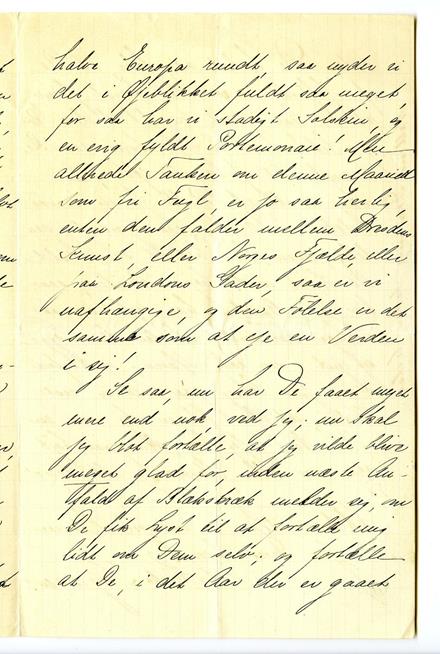 halve Europa rundt, saa nyder vi
det i Øjeblikket fuldt saa meget,
for saa har vi stadigt Solskin, og
en evig fyldt Portemonaie! Men
allerede Tanken om denne Maaned
som fri Fugl, er jo saa herlig,
enten den falder mellem Dresdens
Kunst, eller Norges Fjelde, eller
paa Londons Gader, saa er vi
uafhængige, og den Følelse er det
samme som at eje en Verden
i sig!
Se saa, nu har De faaet meget
mere end nok ved jeg; nu skal
jeg blot fortælle, at jeg vilde blive
meget glad for, inden næste An-
fald af Blækstræk melder sig, om
De fik Lyst til at fortælle mig
lidt om Dem selv; og fortælle
at De, i det Aar der er gaaet